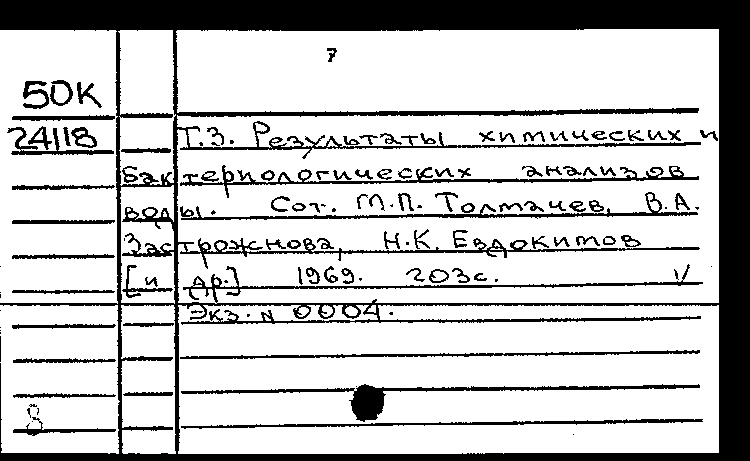 7
50К
24118
Т.3. Результаты химических и
бактериологических анализов
воды. Сот. М.П. Толмачев, В.А.
Застрожнова, Н.К. Евдокимов
[и др.] 1969. 203с. V
Экз. N 0004.
8